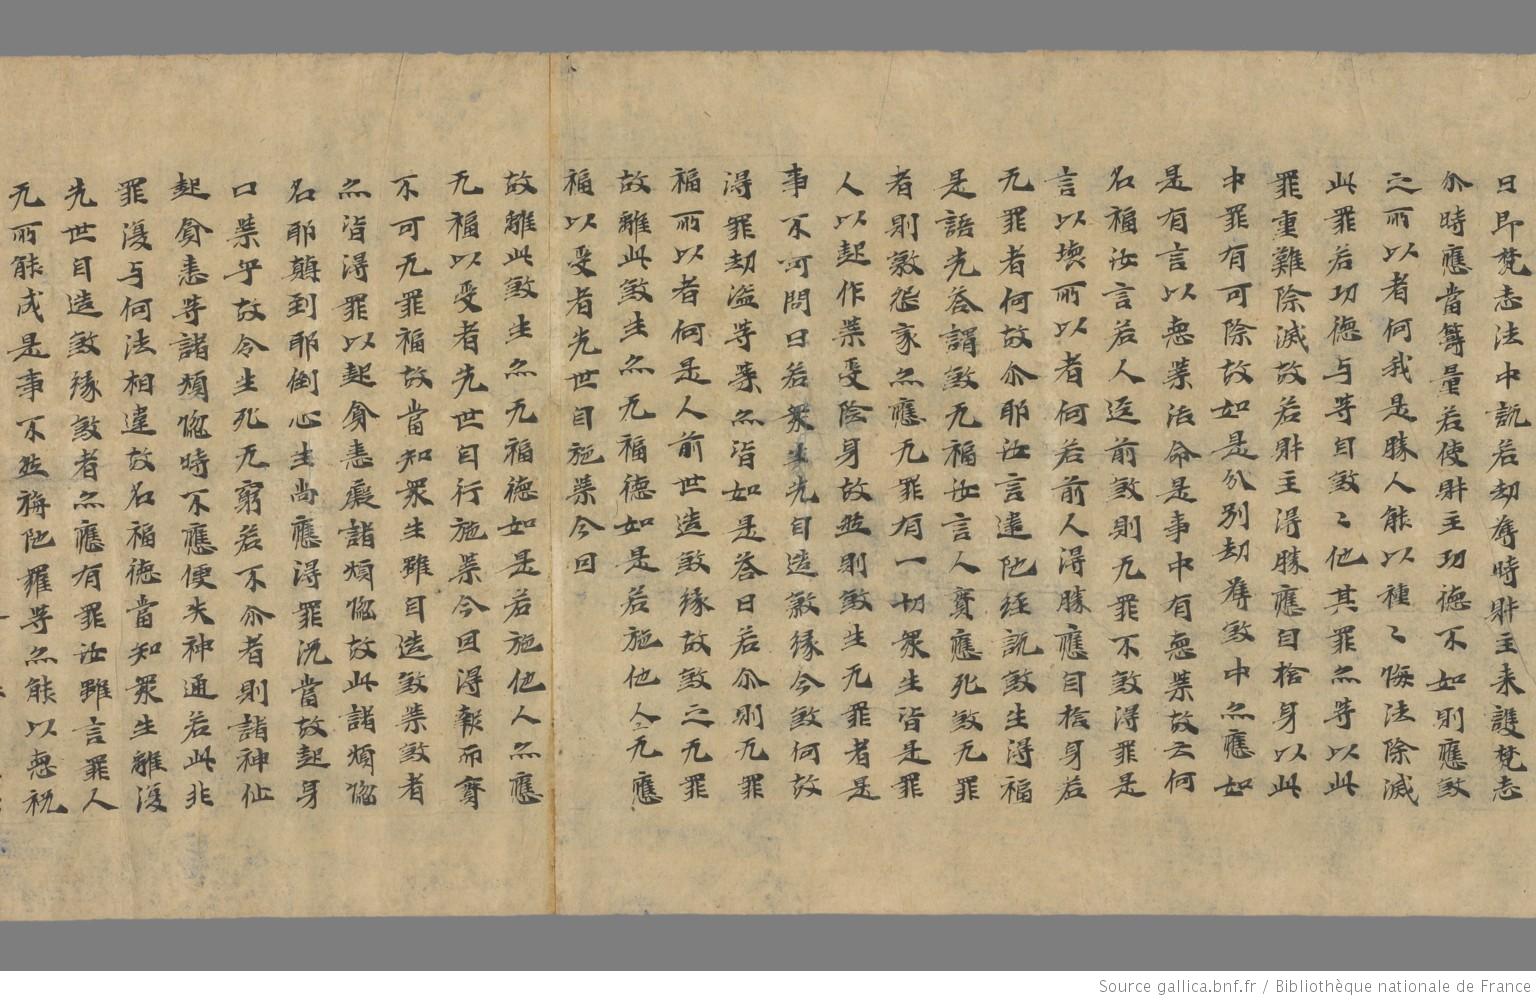 曰即梵志法中説若劫奪時財主来護梵志
尒時應當籌量若使財主功德不如則應煞
之而以者何我是勝人能以種〻悔法除滅
此罪若功德与等自煞〻他其罪亦等以此
罪重難除滅故若財主得勝應自捨身以此
中罪有可除故如是分别劫奪煞中亦應如
是有言以惡業治命是事中有惡業故云何
名福汝言若人迳前煞則无罪不煞得罪是
言以壊所以者何若前人得勝應自捨身若
无罪者何故尒耶汝言違陁経説煞生得福
是語先荅謂煞无福汝言人實應死煞无罪
者則煞怨家亦應无罪有一切衆生皆是罪
人以起作業受陰身故然則煞生无罪者是
事不可問曰若衆生先自造煞縁今煞何故
得罪劫盗等業亦皆如是荅曰若尒則无罪
福所以者何是人前世造煞縁故煞之无罪
故離此煞生亦无福德如是若施他人无應
福以受者先世自施業今回
故離此煞生亦无福德如是若施他人亦應
无福以受者先世自行施業今回得報而實
不可无罪福故當知衆生雖自造煞業煞者
亦皆得罪以起貪恚癡諸煩惱故此諸煩惱
名耶顛到耶倒心生尚應得罪况當故起身
口業乎故令生死无窮若不尒者則諸神仙
起貪恚等諸煩惱時不應便失神通若此非
罪復与何法相違故名福德當知衆生離復
先世自造煞縁煞者亦應有罪汝雖言罪人
无所能成是事不然旃陁羅等亦能以惡祝